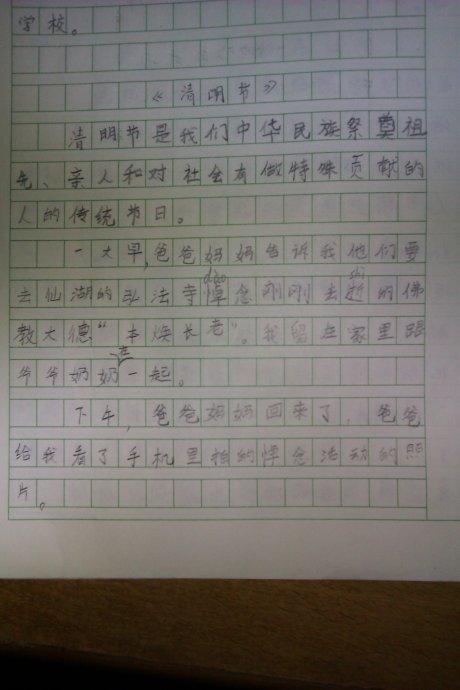 学校。
《清明节》
清明节是我们中华民族祭奠祖
先、亲人和对社会有做特殊贡献的
人的传统节日。
一大早,爸爸妈妈告诉我他们要
去仙湖的弘法寺悼(dào)念刚刚去逝(shì)的佛
教大德“本焕长老”。我留在家里跟
爷爷奶奶在一起。
下午,爸爸妈妈回来了,爸爸
给我看了手机里拍的悼念活动的照
片。